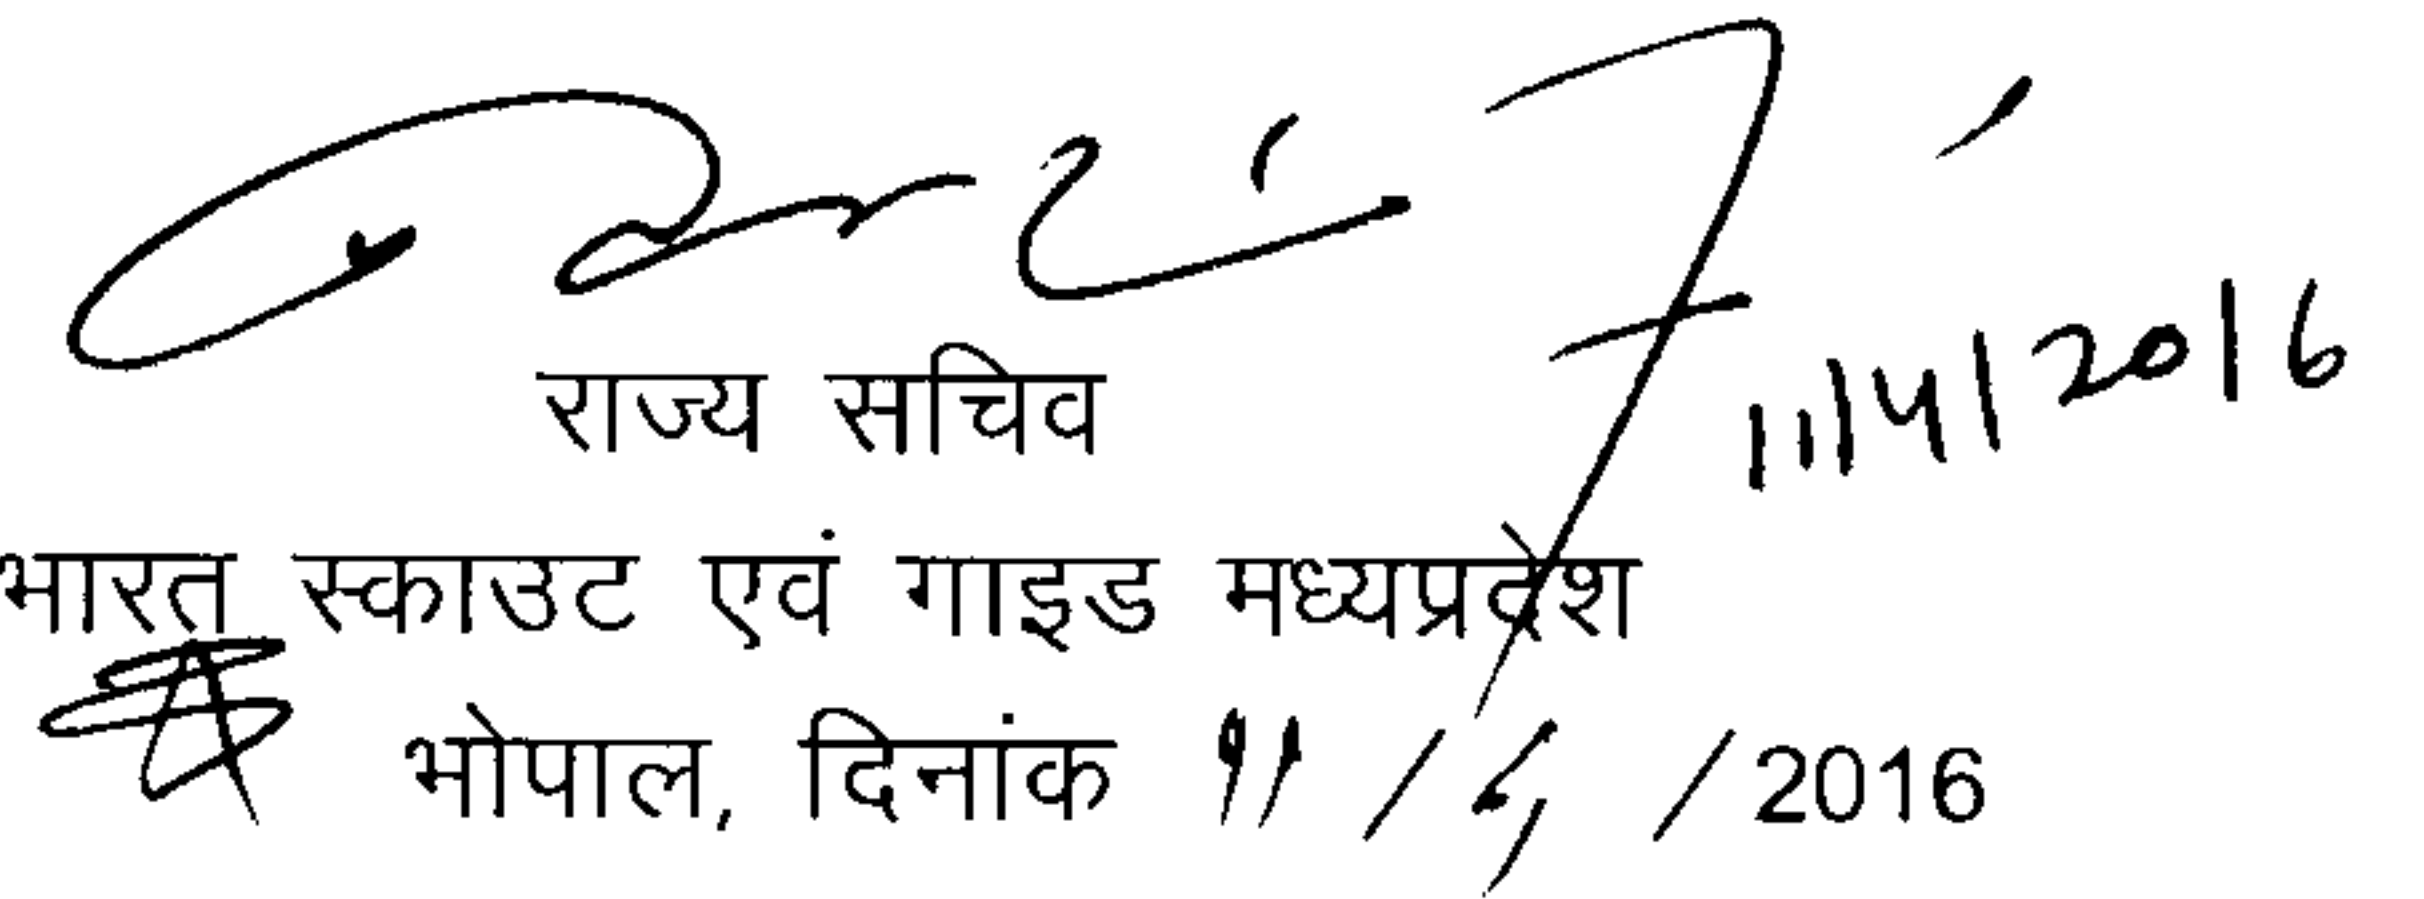 11/4/2016
राज्य सचिव
भारत स्काउट एवं गाइड मध्यप्रदेश
भोपाल, दिनांक 11 / 4 / 2016